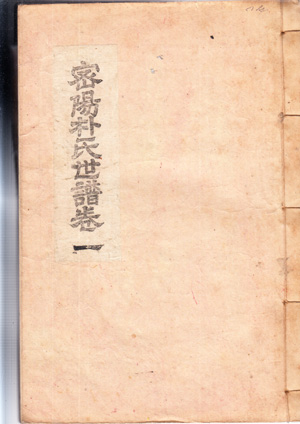 密陽朴氏世譜卷一